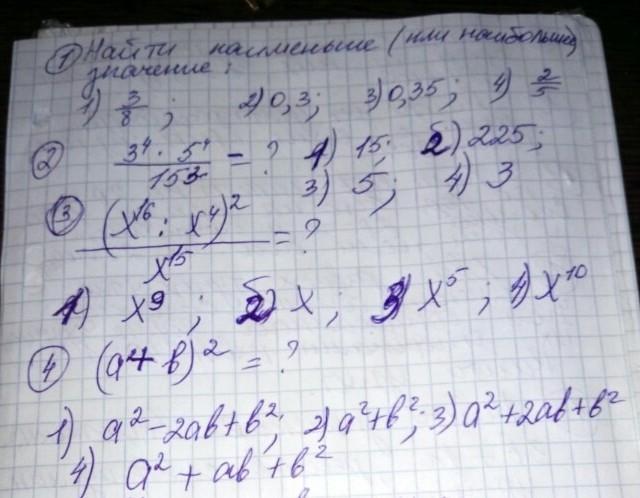 ① Найти наименьше (или наибольшее)
значение:
1) 3/8 ; 2) 0,3; 3) 0,35; 4) 2/5
② 3⁴ · 5⁴ / 15³ = ? 1) 15; 2) 225;
3) 5; 4) 3
③ (x¹⁶ : x⁴)² / x¹⁵ = ?
1) x⁹ ; 2) x ; 3) x⁵ ; 4) x¹⁰
④ (a + b)² = ?
1) a² - 2ab + b²; 2) a² + b²; 3) a² + 2ab + b²
4) a² + ab + b²